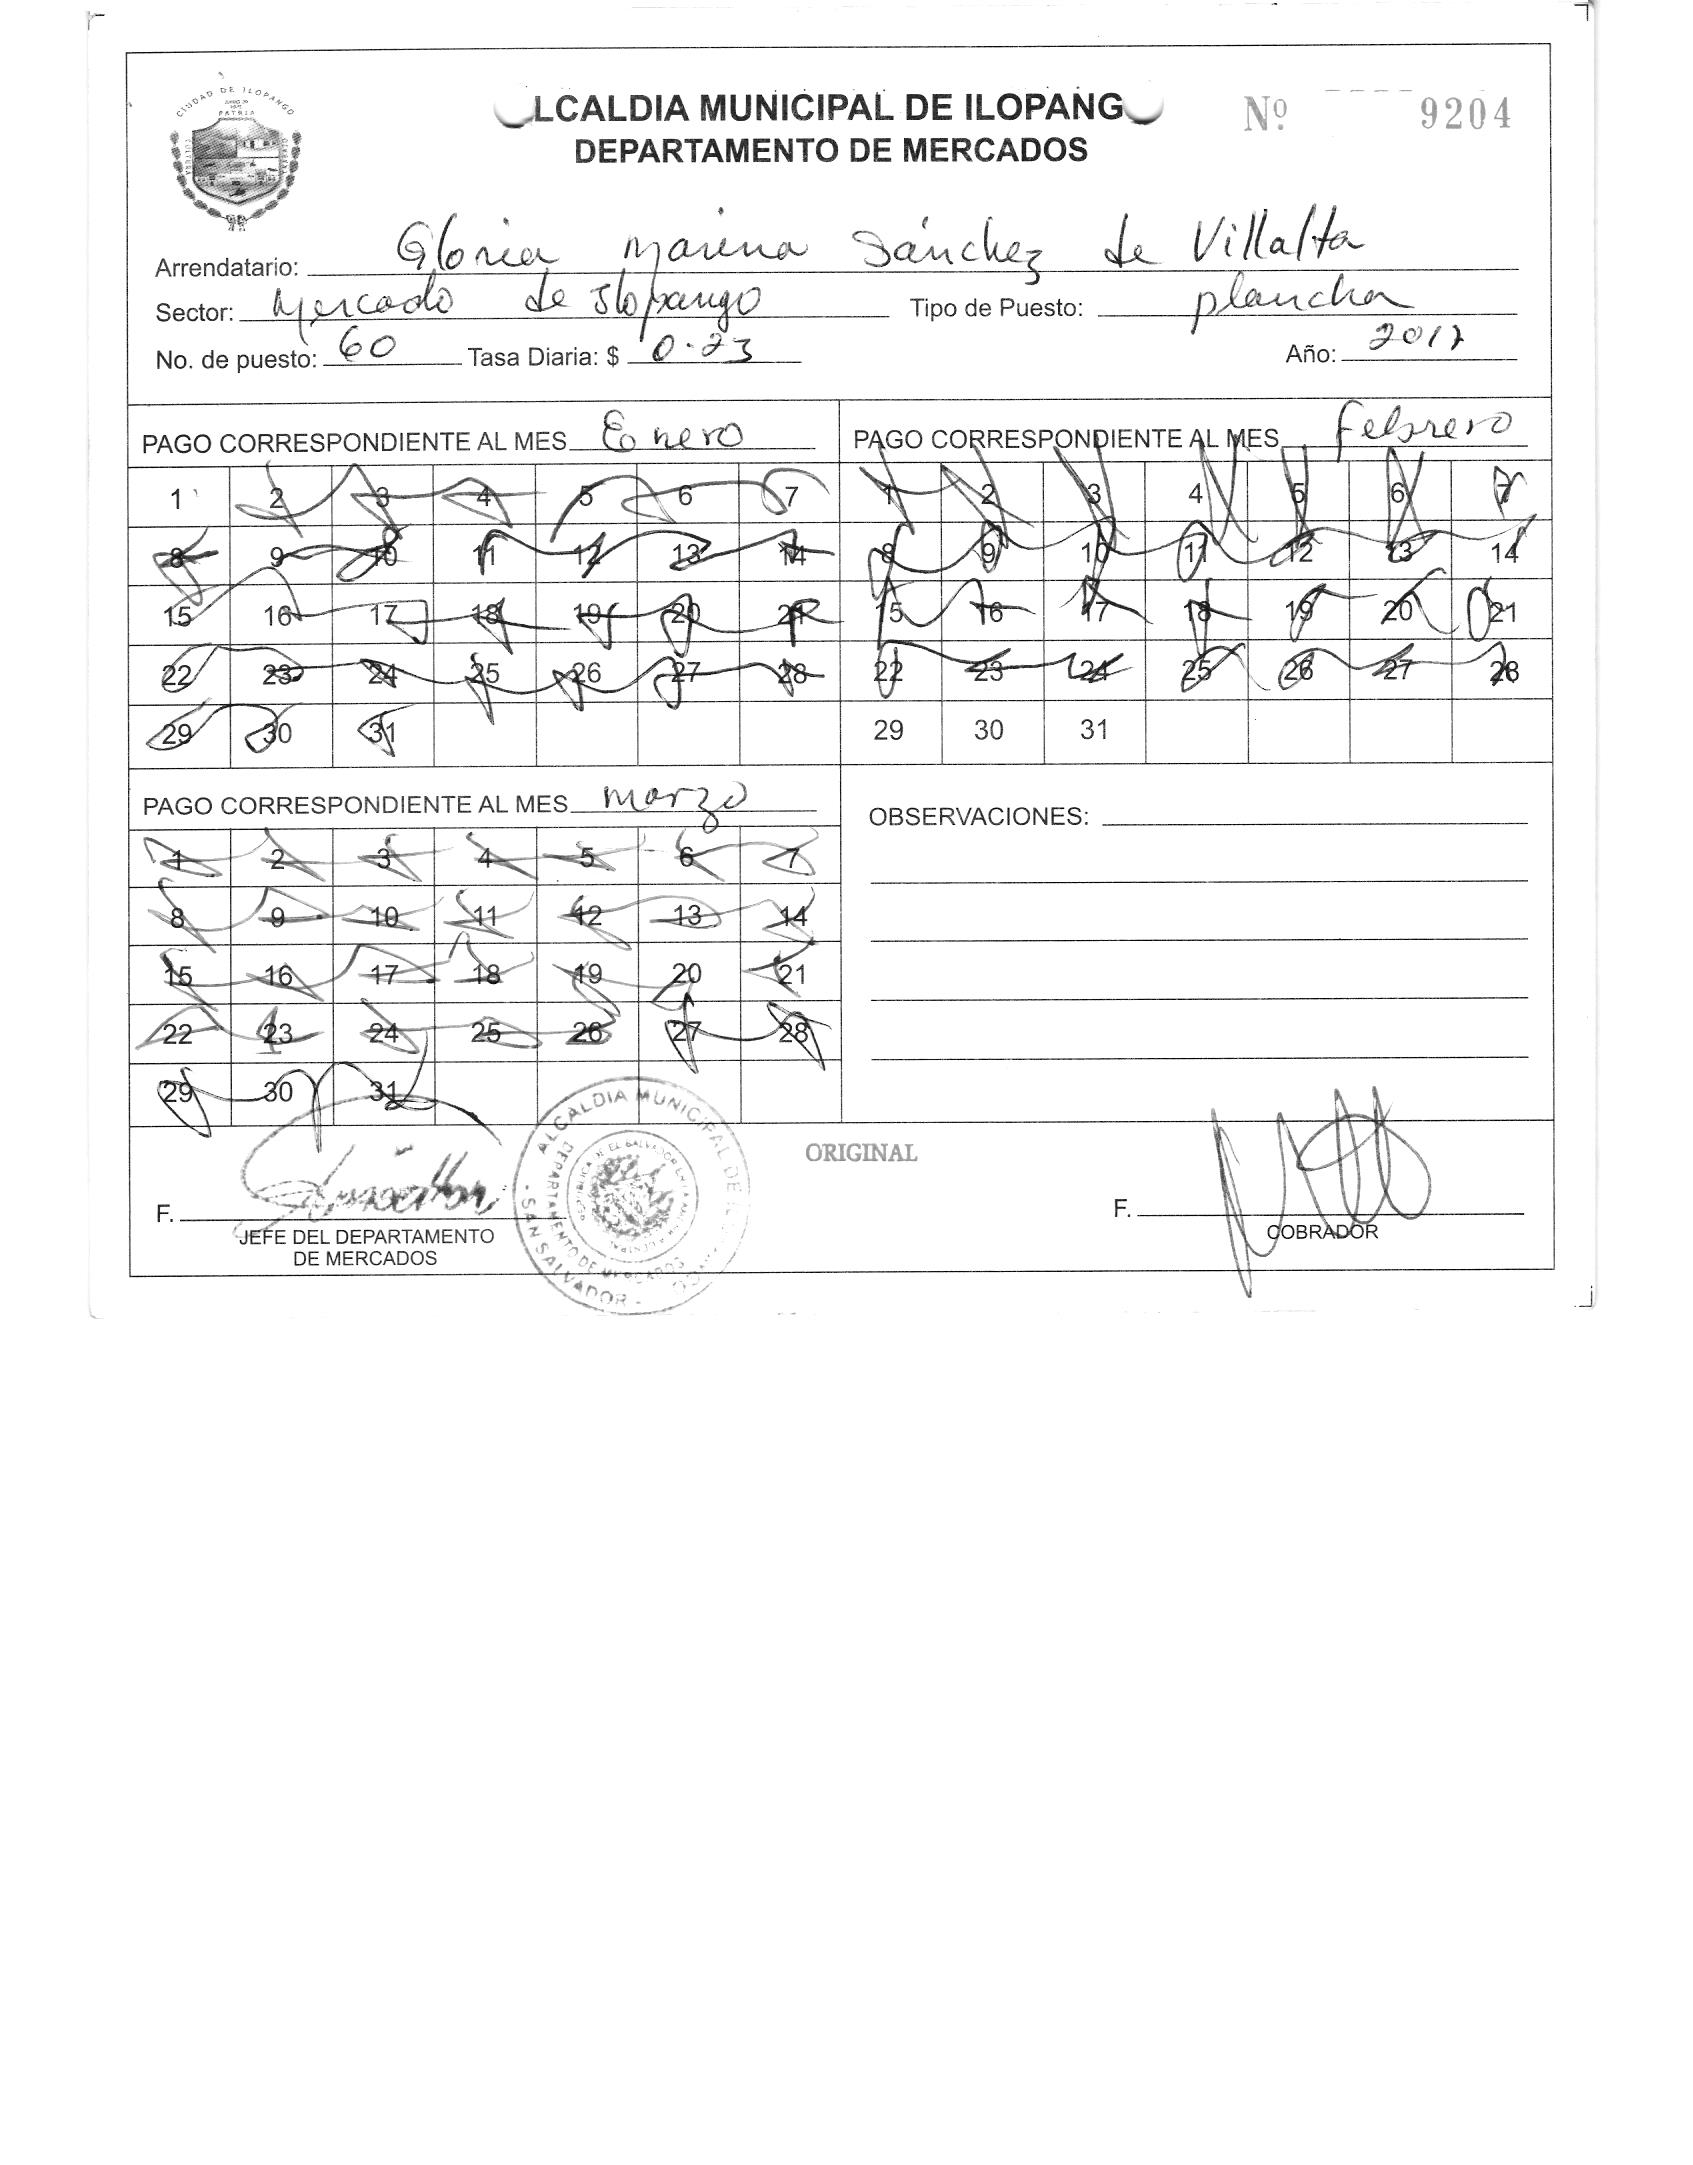 CIUDAD DE ILOPANGO
PATRIA
CULTURA
LCALDIA MUNICIPAL DE ILOPANG
DEPARTAMENTO DE MERCADOS
Nº 9204
Arrendatario: Gloria Marina Sánchez de Villalta
Sector: Mercado de Ilopango Tipo de Puesto: plancha
No. de puesto: 60 Tasa Diaria: $ 0.23 Año: 2017
PAGO CORRESPONDIENTE AL MES Enero
1 2 3 4 5 6 7
8 9 10 11 12 13 14
15 16 17 18 19 20 21
22 23 24 25 26 27 28
29 30 31
PAGO CORRESPONDIENTE AL MES Febrero
1 2 3 4 5 6 7
8 9 10 11 12 13 14
15 16 17 18 19 20 21
22 23 24 25 26 27 28
29 30 31
PAGO CORRESPONDIENTE AL MES Marzo
1 2 3 4 5 6 7
8 9 10 11 12 13 14
15 16 17 18 19 20 21
22 23 24 25 26 27 28
29 30 31
OBSERVACIONES:
ORIGINAL
F.
JEFE DEL DEPARTAMENTO
DE MERCADOS
ALCALDIA MUNICIPAL DE
DEPARTAMENTO DE MERCADOS
- SAN SALVADOR -
F.
COBRADOR